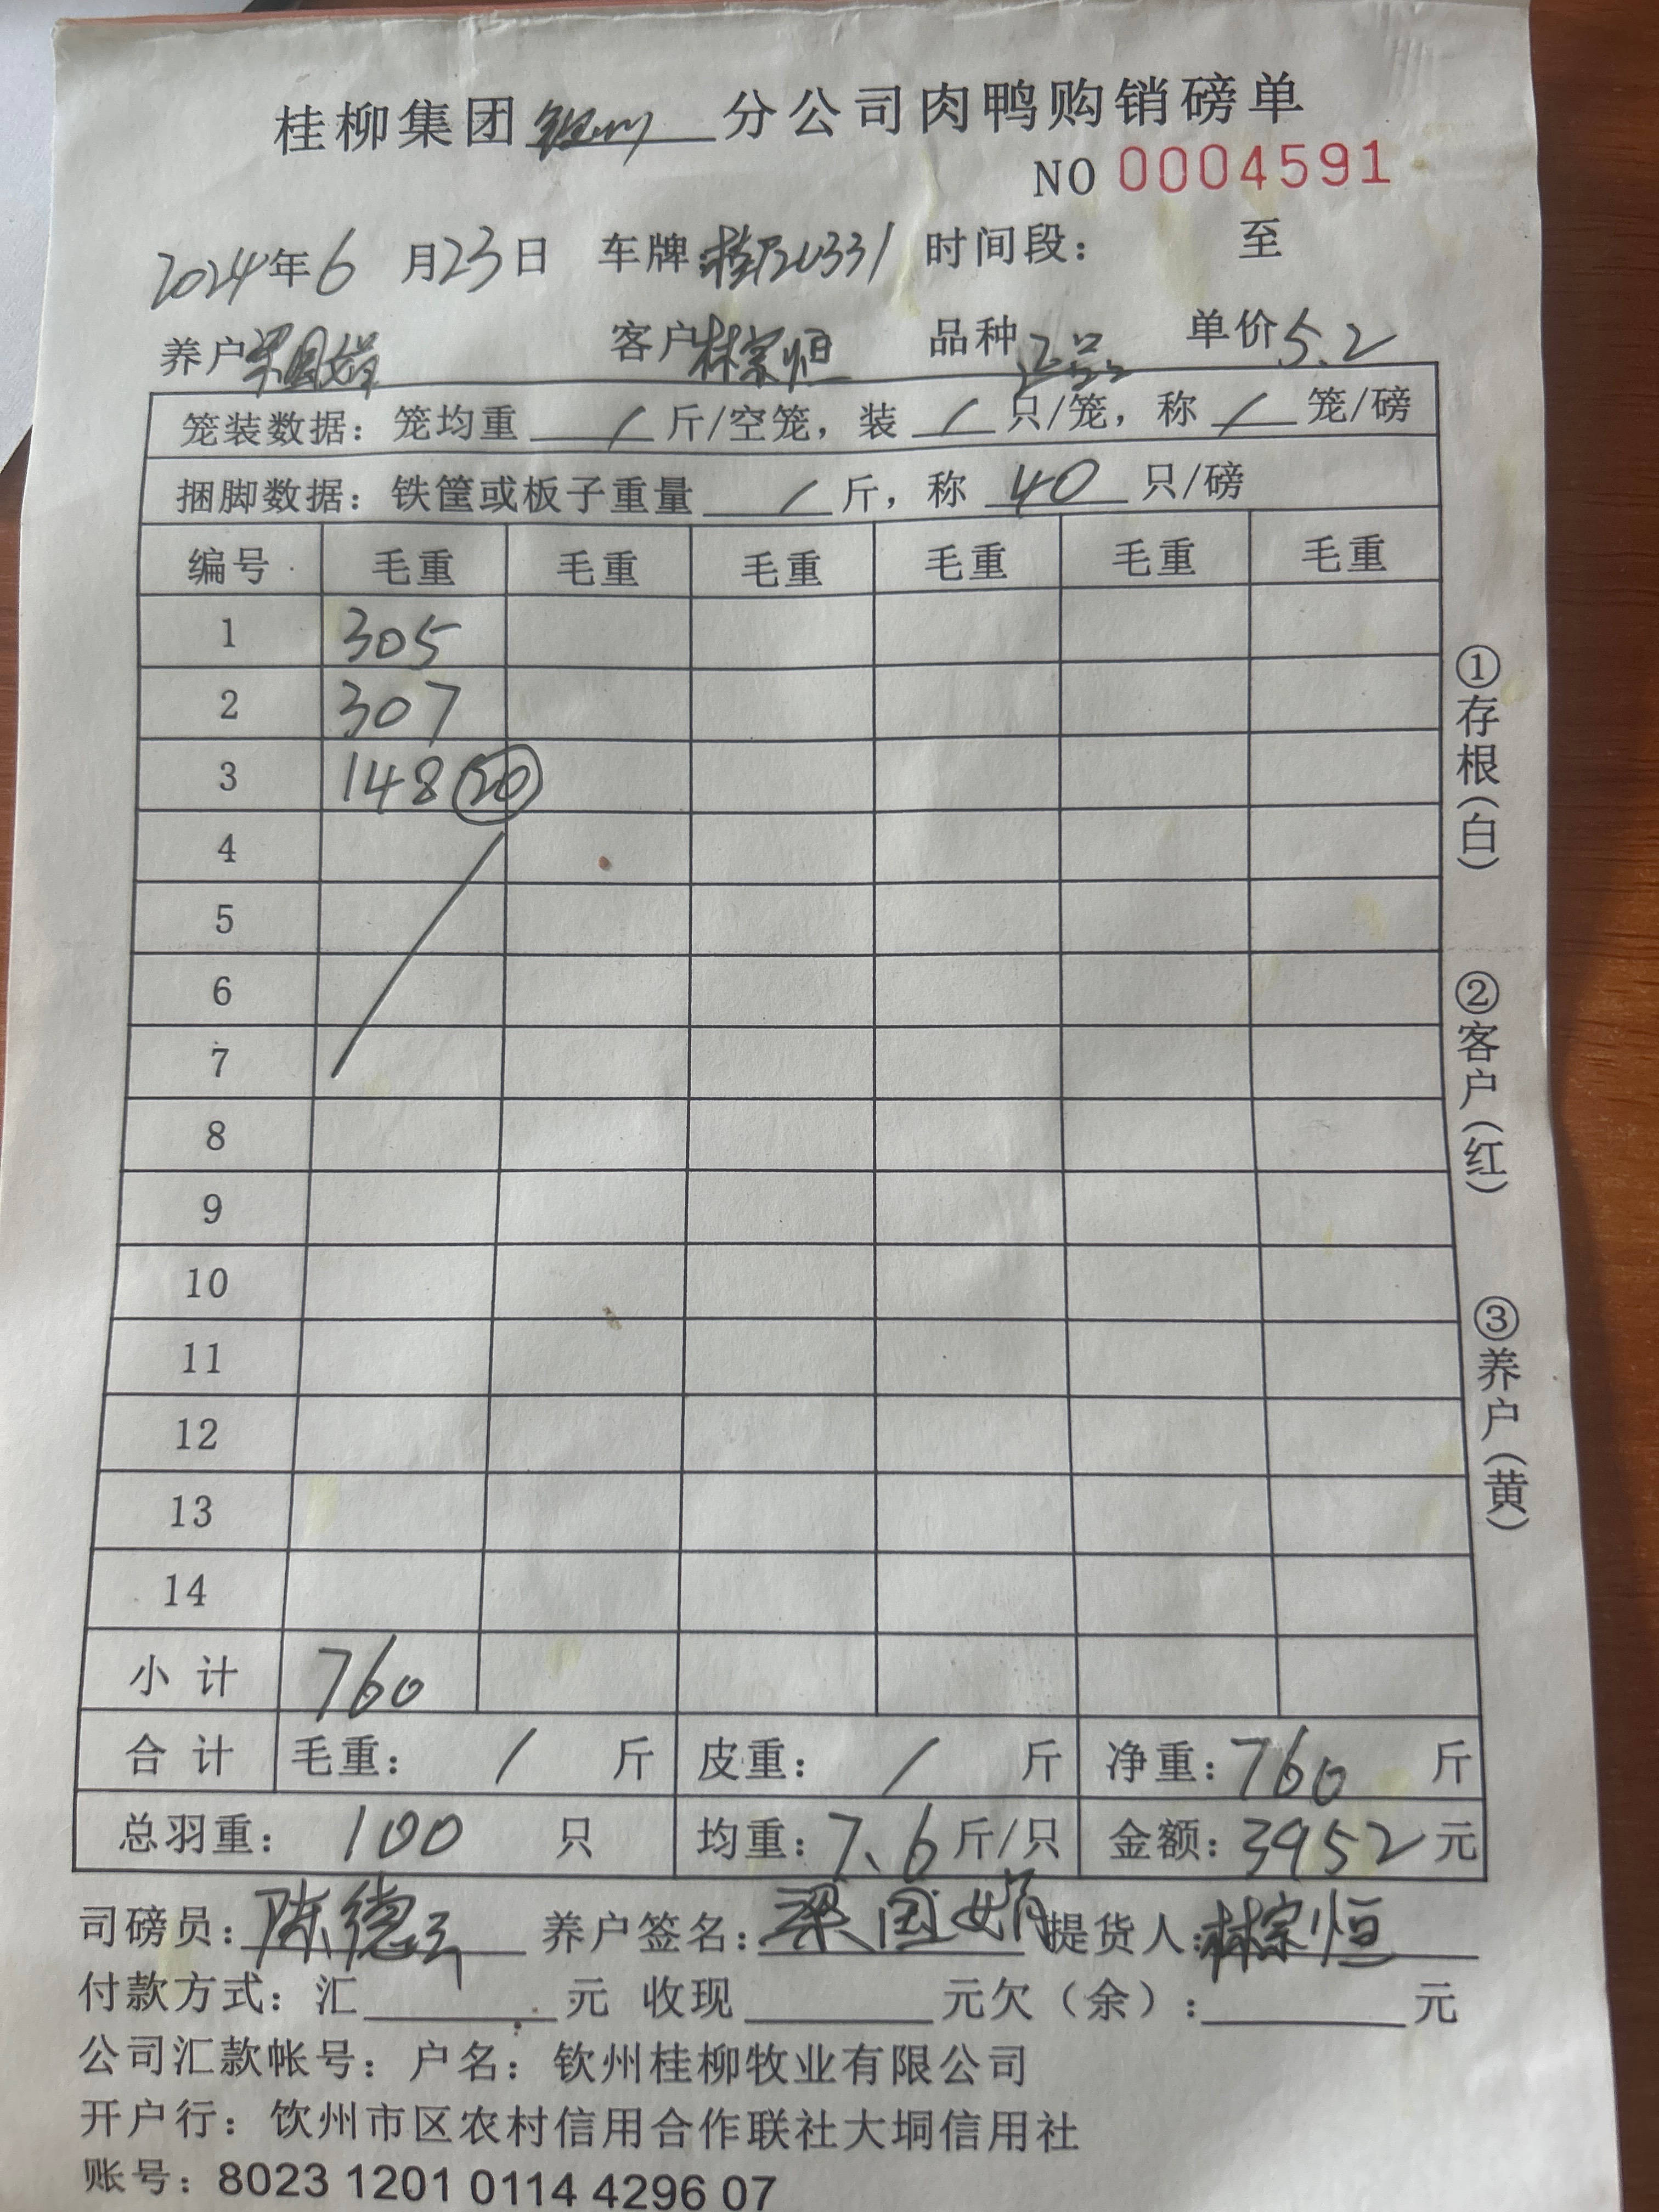 桂柳集团钦州分公司肉鸭购销磅单
NO 0004591
2024年6月23日 车牌: 时间段： 至
养户梁国娟 客户林宗恒 品种正品 单价5.2
笼装数据：笼均重 / 斤/空笼，装 / 只/笼，称 / 笼/磅
捆脚数据：铁筐或板子重量 / 斤，称 40 只/磅
编号 毛重 毛重 毛重 毛重 毛重 毛重
1 305
2 307
3 148 20
4
5
6
7
8
9
10
11
12
13
14
小计 760
合计 毛重： / 斤 皮重： / 斤 净重：760 斤
总羽重： 100 只 均重：7.6斤/只 金额：3952元
司磅员：陈德 养户签名：梁国娟 提货人：林宗恒
付款方式：汇 元 收现 元欠（余）： 元
公司汇款帐号：户名：钦州桂柳牧业有限公司
开户行：饮州市区农村信用合作联社大垌信用社
账号：8023 1201 0114 4296 07
①存根（白）
②客户（红）
③养户（黄）